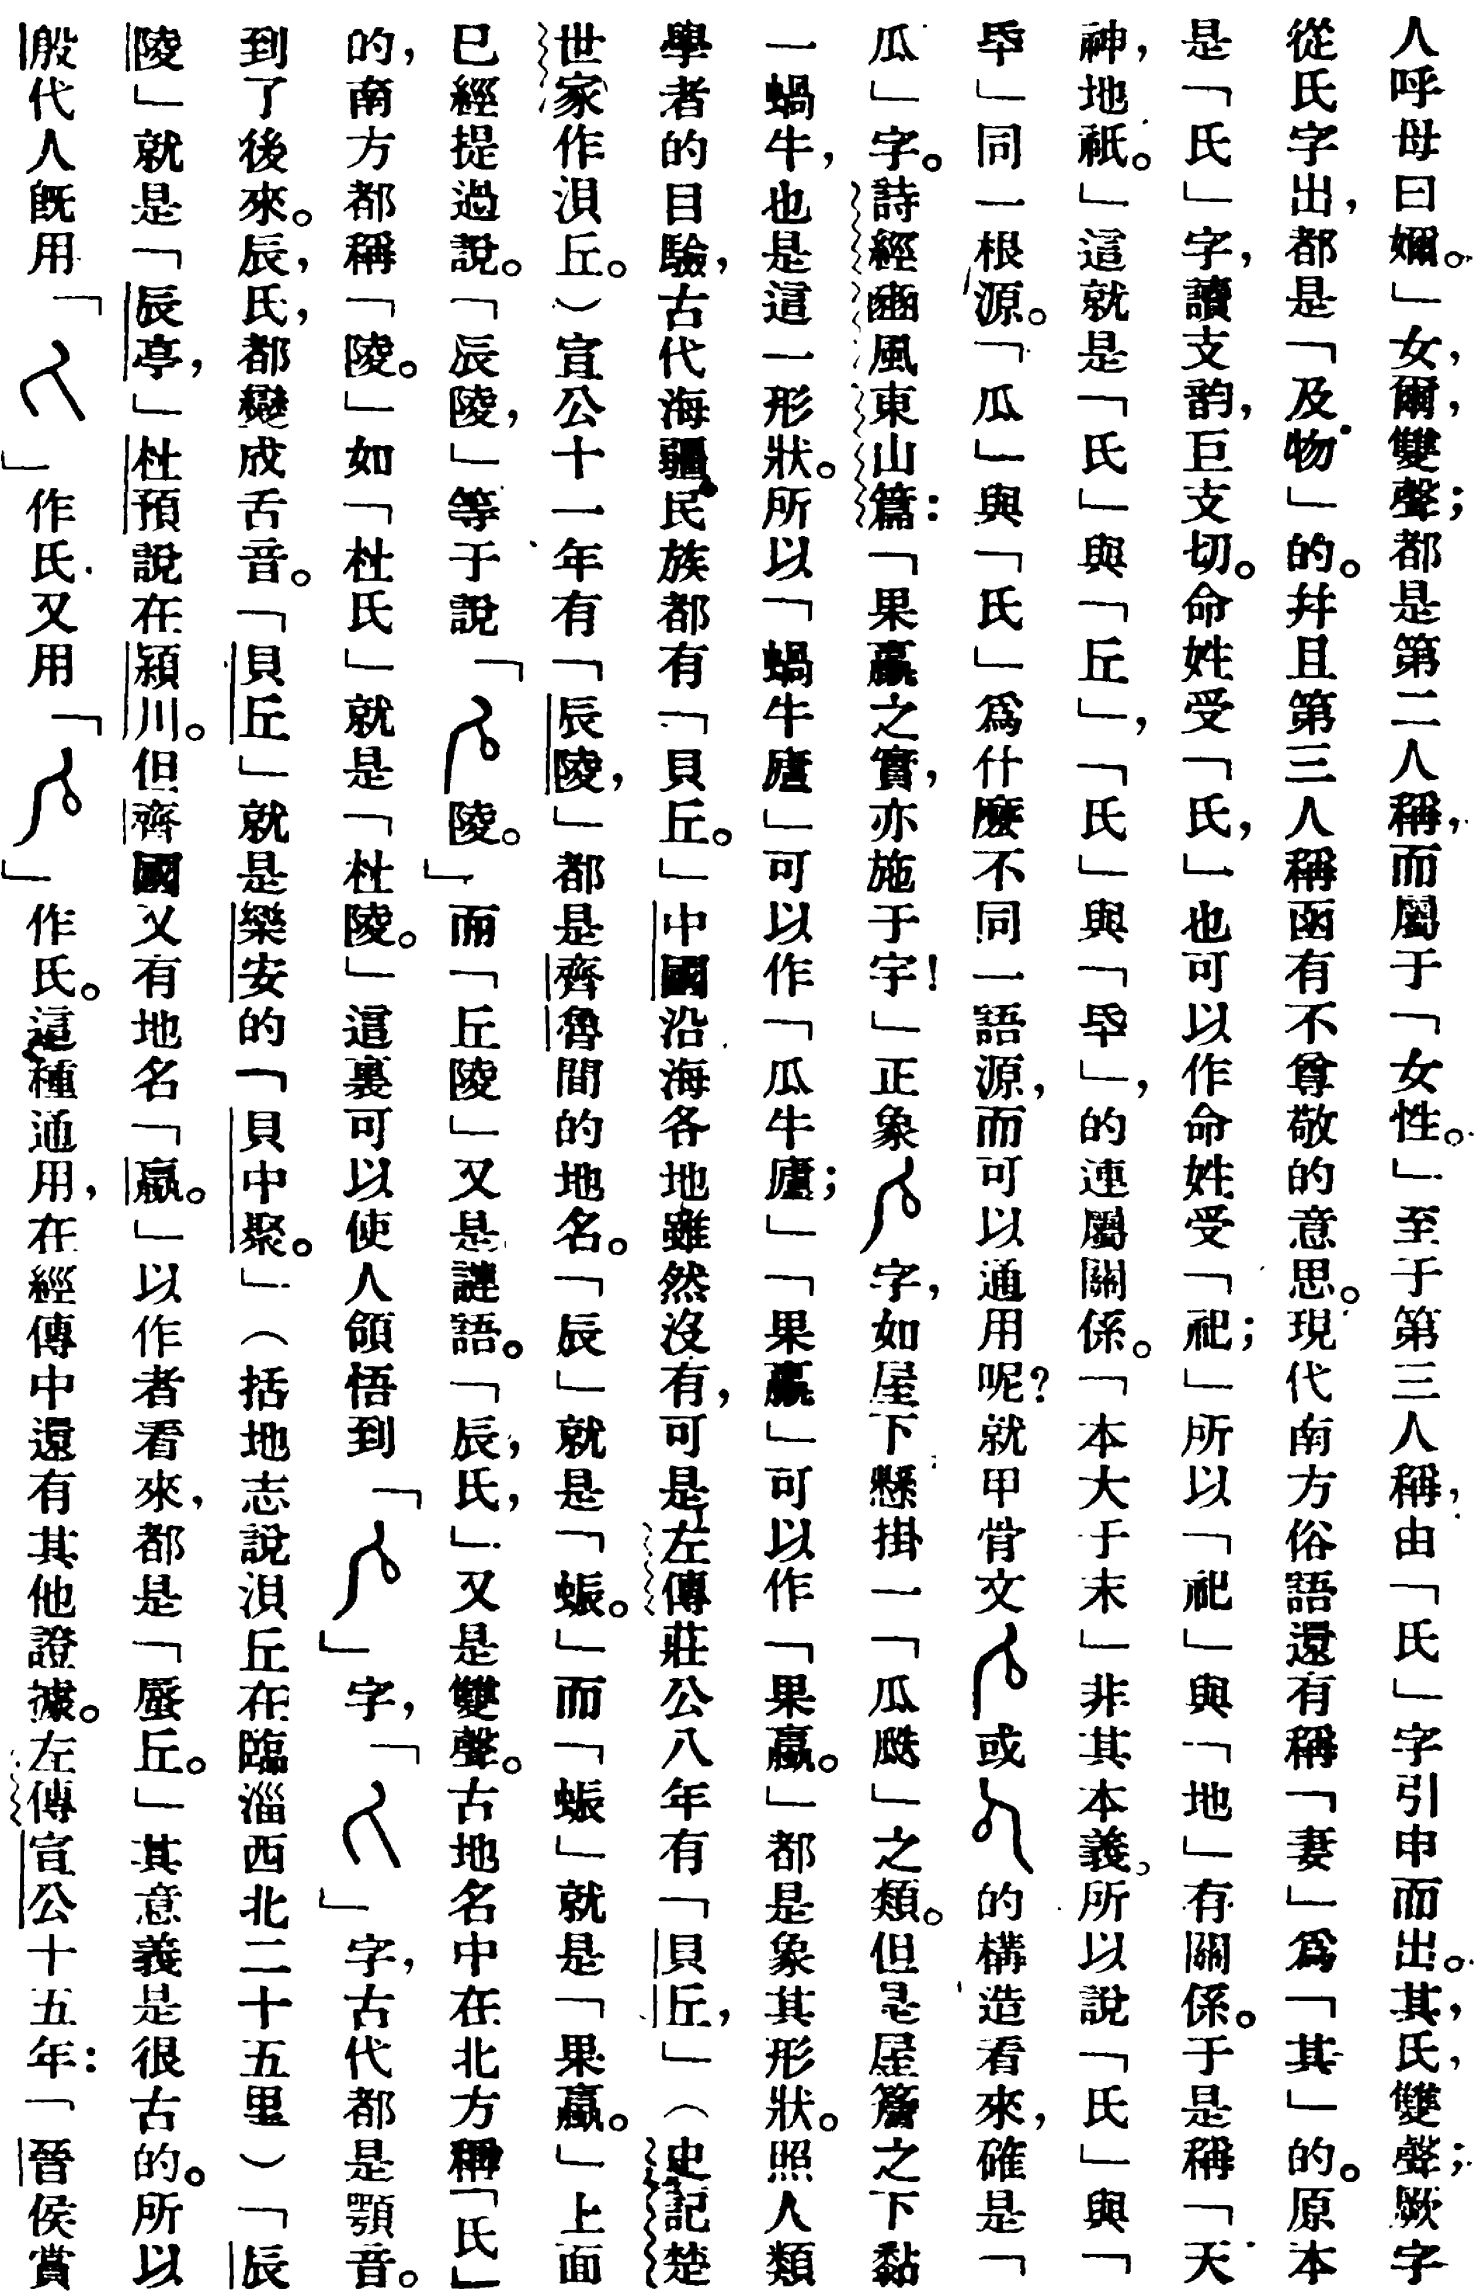 人呼母曰嬭。」女，爾，雙聲；都是第二人稱，而屬于「女性。」至于第三人稱，由「氏」字引申而出。其，氏，雙聲；厥字
從氏字出，都是「及物」的。幷且第三人稱函有不尊敬的意思。現代南方俗語還有稱「妻」爲「其」的。原本
是「氏」字，讀支韵，巨支切。命姓受「氏，」也可以作命姓受「祀；」所以「祀」與「地」有關係。于是稱「天
神，地祇。」這就是「氏」與「丘」，「氏」與「氒」，的連屬關係。「本大于末」非其本義。所以說「氏」與「
氒」同一根源。「瓜」與「氏」爲什麼不同一語源，而可以通用呢？就甲骨文或的構造看來，確是「
瓜」字。詩經豳風東山篇：「果臝之實，亦施于宇！」正象字，如屋下懸掛一「瓜瓞」之類。但是屋簷之下黏
一蝸牛，也是這一形狀。所以「蝸牛廬」可以作「瓜牛廬；」「果臝」可以作「果蠃。」都是象其形狀。照人類
學者的目驗，古代海疆民族都有「貝丘。」中國沿海各地雖然沒有，可是左傳莊公八年有「貝丘，」（史記楚
世家作浿丘。）宣公十一年有「辰陵，」都是齊魯間的地名。「辰」就是「蜄。」而「蜄」就是「果蠃。」上面
已經提過說。「辰陵，」等于說「陵。」而「丘陵」又是謰語。「辰，氏，」又是雙聲。古地名中在北方稱「氏」
的，南方都稱「陵。」如「杜氏」就是「杜陵。」這裏可以使人領悟到「」字，「」字，古代都是顎音。
到了後來。辰，氏，都變成舌音。「貝丘」就是樂安的「貝中聚。」（括地志說浿丘在臨淄西北二十五里）「辰
陵」就是「辰亭，」杜預說在潁川。但齊國又有地名「嬴。」以作者看來，都是「蜃丘。」其意義是很古的。所以
殷代人旣用「」作氏．又用「」作氏。這種通用，在經傳中還有其他證據。左傳宣公十五年：「晉侯賞